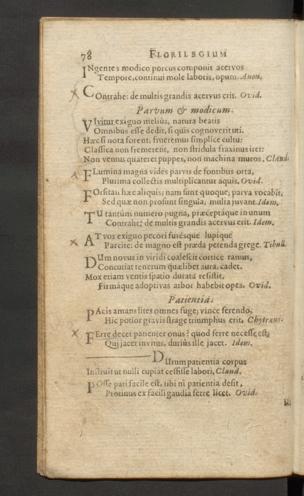 78 FLORILEGIUM
INgentes modico porcus componit acervos
Tempore, continui mole laboris, opum. Anon.
COntrahe: de multis grandis acervus erit. Ovid.
Parvum & modicum.
VIvitur exiguo melius, natura beatis
Omnibus esse dedit, si quis cognoverit uti.
Hæc si nota forent, frueremur simplice cultu:
Classica non fremerent, non stridula fraxinus iret:
Non ventus quateret puppes, non machina muros. Claud.
FLumina magna vides parvis de fontibus orta,
Plurima collectis multiplicantur aquis. Ovid.
FOrsitan hæc aliquis; nam sunt quoque; parva vocabit,
Sed quæ non prosunt singula, multa juvant. Idem.
TU tantum numero pugna, præceptáque in unum
Contrahe; de multis grandis acervus erit. Idem.
AT vos exiguo pecori furésque lupique
Parcite: de magno est præda petenda grege. Tibull.
DUm novus in viridi coalescit cortice ramus,
Concutiat tenerum quælibet aura, cadet.
Mox etiam ventis spatio durata resistit,
Firmáque adoptivas arbor habebit opes. Ovid.
Patientia.
PAcis amans lites omnes fuge; vince ferendo,
Hic potior gravis strage triumphus erit. Chytræus.
FErre decet patienter onus; quod ferre necesse est;
Qui jacet invitus, durius ille jacet. Idem.
DIstrum patientia corpus
Instruit ut nulli cupiat cessisse labori. Claud.
POsse pati facile est, tibi ni patientia desit,
Protinus ex facili gaudia ferre licet. Ovid.